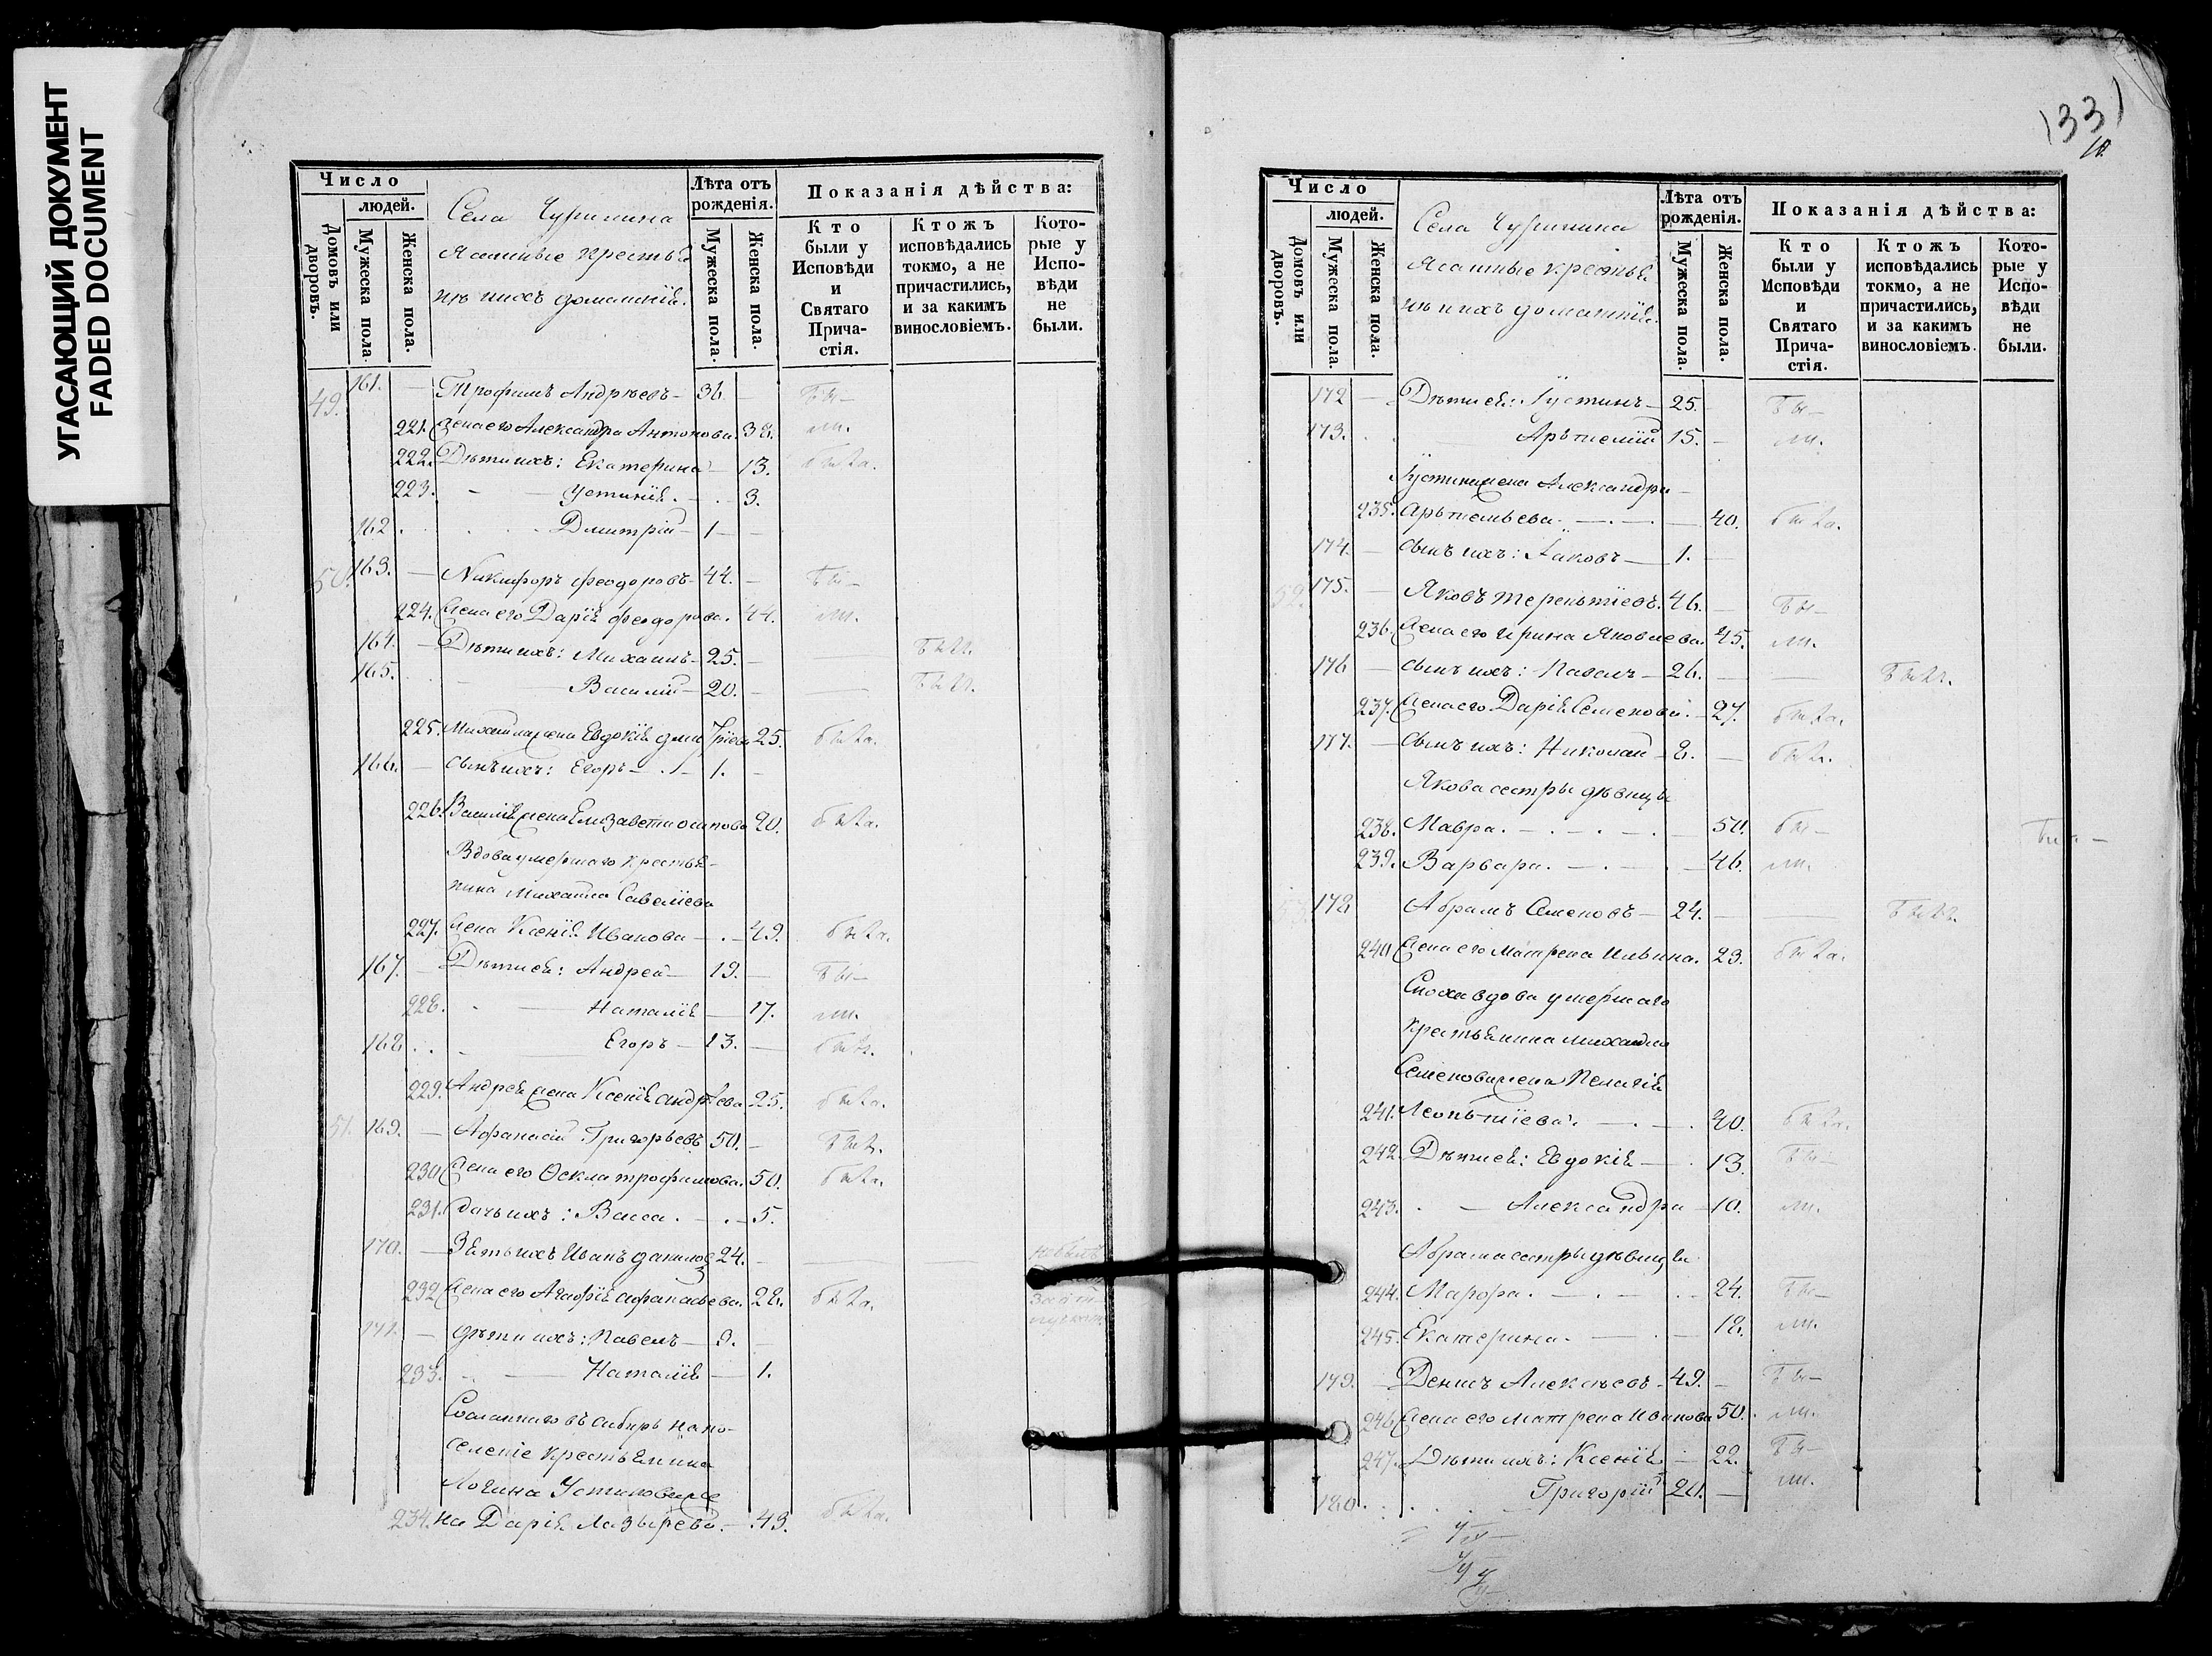 УГАСАЮЩИЙ ДОКУМЕНТ
FADED DOCUMENT
Число
людей.
Домовъ или дворовъ.
Мужеска пола.
Женска пола.
Села Чурилина
Ясашные крестья
не и ихъ домашнiя.
Лѣта отъ рожденія.
Мужеска пола.
Женска пола.
Показанія дѣйства:
Кто были у Исповѣди и Святаго Прича-стія.
Ктожъ исповѣдались токмо, а не причастились, и за какимъ винословіемъ.
Кото-рые у Испо-вѣди не были.
49. 161. — Трофимъ Андрѣевъ — 36. — бы—
221. Жена его Александра Антонова. 38. ли.
222. Дѣти ихъ: Екатерина — 13. была.
223. — Устинія. — 3.
162. Дмитрій — 1 —
50. 163. — Никифоръ Феодоровъ — 44. — бы—
224. Жена его Дарія Феодорова. 44. ли.
164. — Дѣти ихъ: Михаилъ — 25. — — былъ.
165. — Василій — 20. — — былъ.
225. Михаила жена Евдокія Дмитріева 25. была.
166. — Сынъ ихъ: Егоръ — 1. —
226. Василія жена Елизавета Осипова 20. была.
Вдова умершаго крестья-
нина Михаила Савеліева
227. жена Ксенія Иванова — 49. была.
167. — Дѣти ея: Андрей — 19. — бы—
228. — Наталія — 17. ли.
168. Егоръ — 13. — былъ.
229. Андрея жена Ксенія Андрѣева 25. была.
51. 169. — Афанасій Григорьевъ 50. — былъ.
230. Жена его Ѳекла Трофимова. 50. была.
231. Дочь ихъ: Васса. — 5.
170. — Зять ихъ Иванъ Данилов 24. — — не былъ
232. Жена его Агафія Афанасьева. 28. была.
171. — Дѣти ихъ: Павелъ — 9. —
233. — Наталія — 1.
Сосланнаго въ Сибирь на по-
селеніе крестьянина
Логина Устинова же
234. на Дарія Лазырева. — 43. была.
133
Число
людей.
Домовъ или дворовъ.
Мужеска пола.
Женска пола.
Села Чурилина
Ясашные крестья
не и ихъ домашнiя.
Лѣта отъ рожденія.
Мужеска пола.
Женска пола.
Показанія дѣйства:
Кто были у Исповѣди и Святаго Прича-стія.
Ктожъ исповѣдались токмо, а не причастились, и за какимъ винословіемъ.
Кото-рые у Испо-вѣди не были.
172 — Дѣти ея: Іустинъ — 25. — бы—
173. Арѣтемій 15. — ли.
Іустина жена Александра —
235. Арѣтемьева. — 40. была.
174. — Сынъ ихъ: Іаковъ — 1. —
52. 175. — Яковъ Терентіевъ. 46. — бы—
236. Жена его Ирина Яковлева. 45. ли.
176 — Сынъ ихъ: Павелъ — 26. — — былъ.
237. Жена его Дарія Семенова. — 27. была.
177. — Сынъ ихъ: Николай — 8. — былъ.
Якова сестры дѣвицы
238. Мавра. — 50. бы—
239. Варвара. — 46. ли.
178 Абрамъ Семеновъ — 24. — — былъ.
240 Жена его Матрена Ильина. 23. была.
Сноха вдова умершаго
крестьянина Михаила
Семенова жена Пелагія
241. Леонътіева. — 40. была.
242. Дѣти ея: Евдокія — 13. бы—
243. — Александра — 10. ли.
Абрама сестры дѣвицы
244. Марфа. — 24. бы—
245. Екатерина. — 18. ли.
179. — Денисъ Алексѣевъ — 49. — бы—
246. Жена его Матрена Иванова 50. ли.
247. Дѣти ихъ: Ксенія — 22. бы—
180. Григорій 20. — ли.